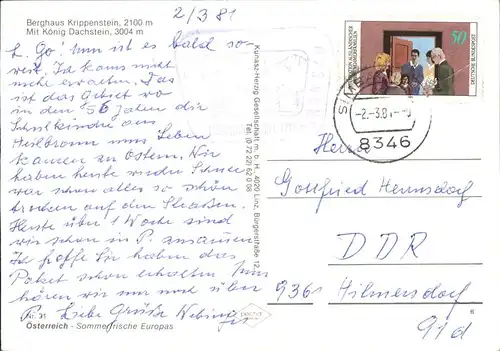 Berghaus Krippenstein, 2100 m
Mit König Dachstein, 3004 m
2/3 81
L. Go! nun ist es bald so-
weit. Ich kanns nicht
mehr erwarten. Das
ist das Gebet so
in den 50 Jahren die
Schulkinder aus
Heilbronn uns Leben
kamen zu Ostern. Wir
haben heute wieder Schnee
war schon alles so schön
trocken auf den Straßen.
Heute über 1 Woche sind
wir schon in P. zusammen
Ich hoffe Sie haben das
Paket schon erhalten
hören wir mal was über
P. Liebe Grüße
Nr. 31
Österreich - Sommerfrische Europas
Kunasz-Herzog Gesellschaft m. b. H. 4020 Linz, Bürgerstraße 12,
Tel. (0 72 22) 62 0 08
50
DEUTSCHE BUNDESPOST
-2.-3.81
8346
Herrn
Gottfried Hermsdorf
DDR
9361 Hilmersdorf
91d
6